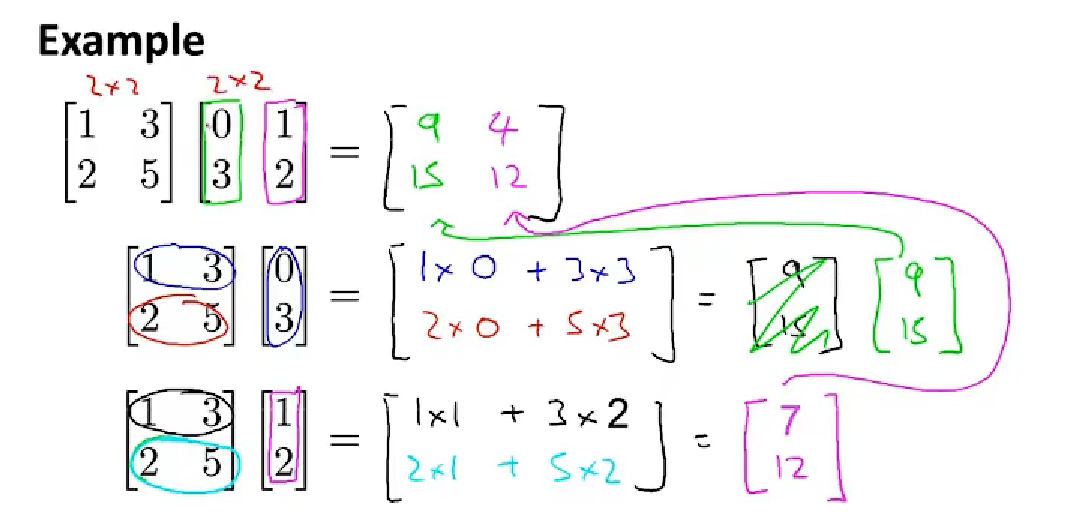 Example
2×2 2×2
[1 3; 2 5] [0 1; 3 2] = [9 4; 15 12]
[1 3; 2 5] [0; 3] = [1×0 + 3×3; 2×0 + 5×3] = [9; 15] [9; 15]
[1 3; 2 5] [1; 2] = [1×1 + 3×2; 2×1 + 5×2] = [7; 12]